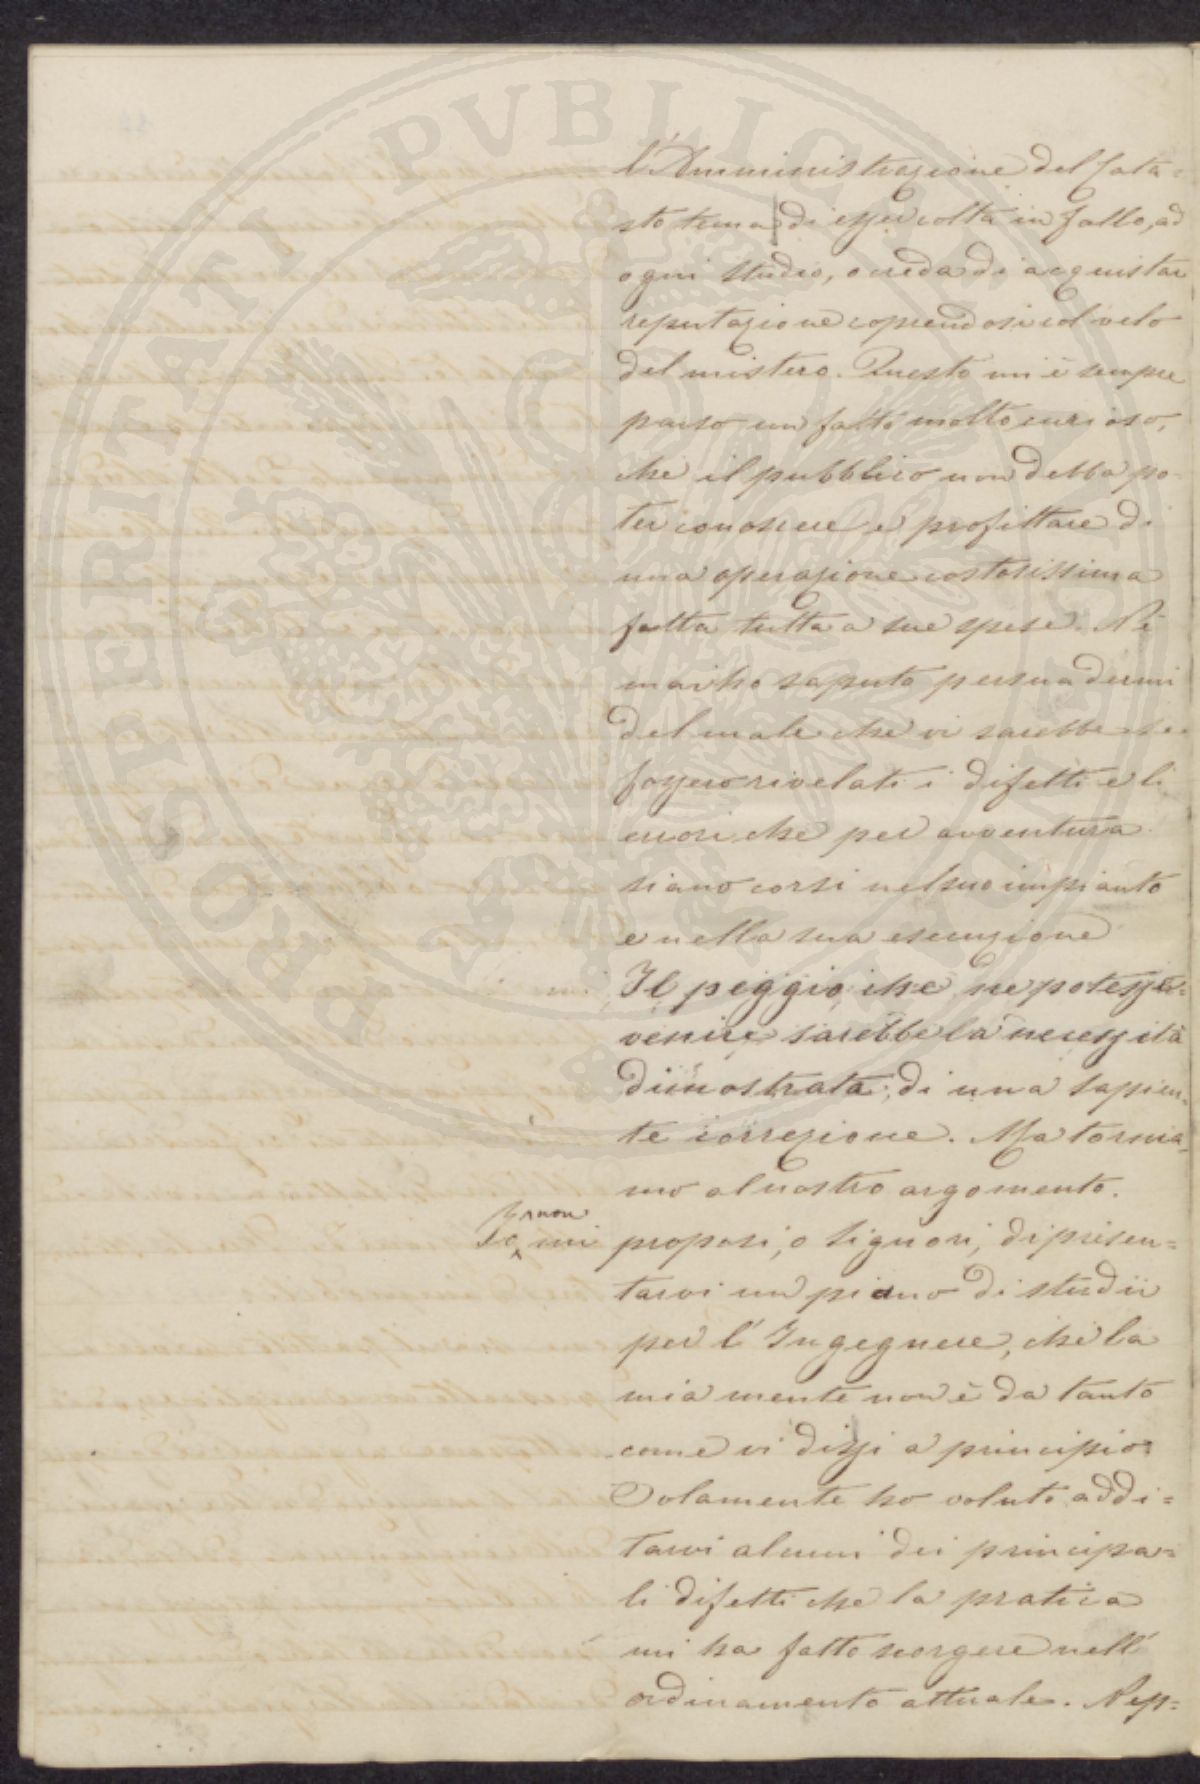 PROSPERITATI PVBLICAE
l'Amministrazione del Cata-
sto tema di esser colta in fallo, ad
ogni studio, o creda di acquistar
reputazione coprendosi col velo
del mistero. Questo mi è sempre
parso un fatto molto curioso,
che il pubblico non debba po-
ter conoscere e profittare di
una operazione costosissima
fatta tutta a sue spese. Nè
mai ho saputo persuadermi
del male che vi sarebbe se
fossero rivelati i difetti e li
errori che per avventura
siano corsi nel suo impianto
e nella sua esecuzione
Il peggio che ne potesse av-
venire sarebbe la necessità
dimostrata, di una sapien-
te correzione. Ma tornia-
mo al nostro argomento.
Io non mi proposi, o Signori, di presen=
tarvi un piano di studii
per l'Ingegnere, chè la
mia mente non è da tanto
come vi dissi a principio:
Solamente ho voluto addi=
tarvi alcuni dei principa=
li difetti che la pratica
mi ha fatto scorgere nell'
ordinamento attuale. Nep=